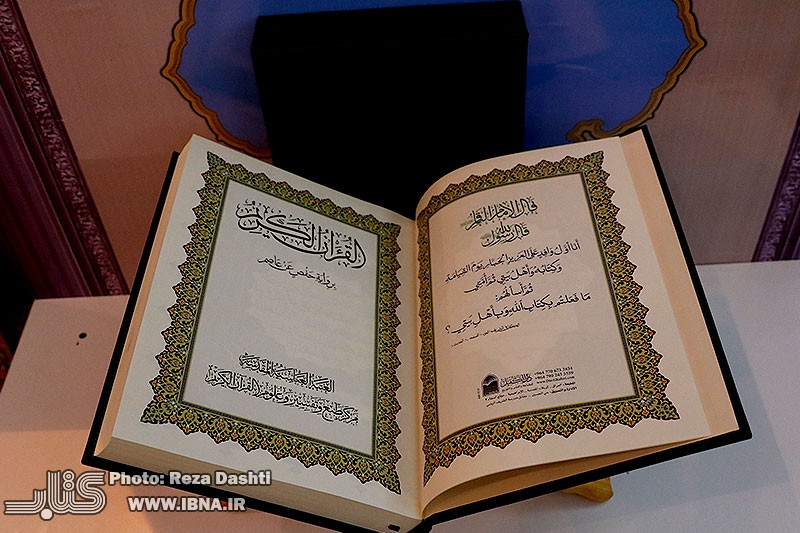 قال الإمام الباقر
قال رسول الله
أنا أول وافد على العزيز الجبار يوم القيامة
وكتابه وأهل بيتي ثم أمتي
ثم أسألهم:
ما فعلتم بكتاب الله وبأهل بيتي؟
+964 770 673 3834
القرآن الكريم
برواية حفص عن عاصم
العتبة العباسية المقدسة
مركز طبع ونشر وعلوم القرآن الكريم
كتاب
Photo: Reza Dashti
WWW.IBNA.IR